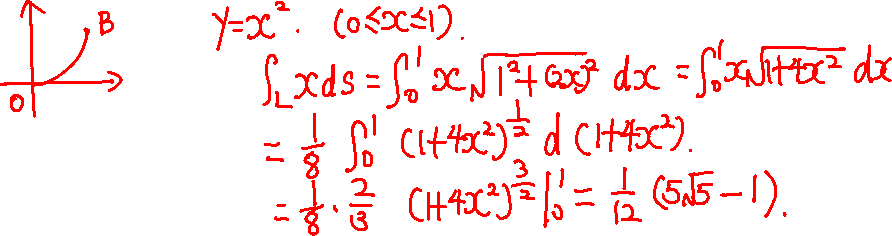 B
O
y=x². (0≤x≤1).
∫_L xds = ∫₀¹ x√(1²+(2x)²) dx = ∫₀¹ x√(1+4x²) dx
= 1/8 ∫₀¹ (1+4x²)^(1/2) d(1+4x²).
= 1/8 · 2/3 (1+4x²)^(3/2) |₀¹ = 1/12 (5√5 - 1).